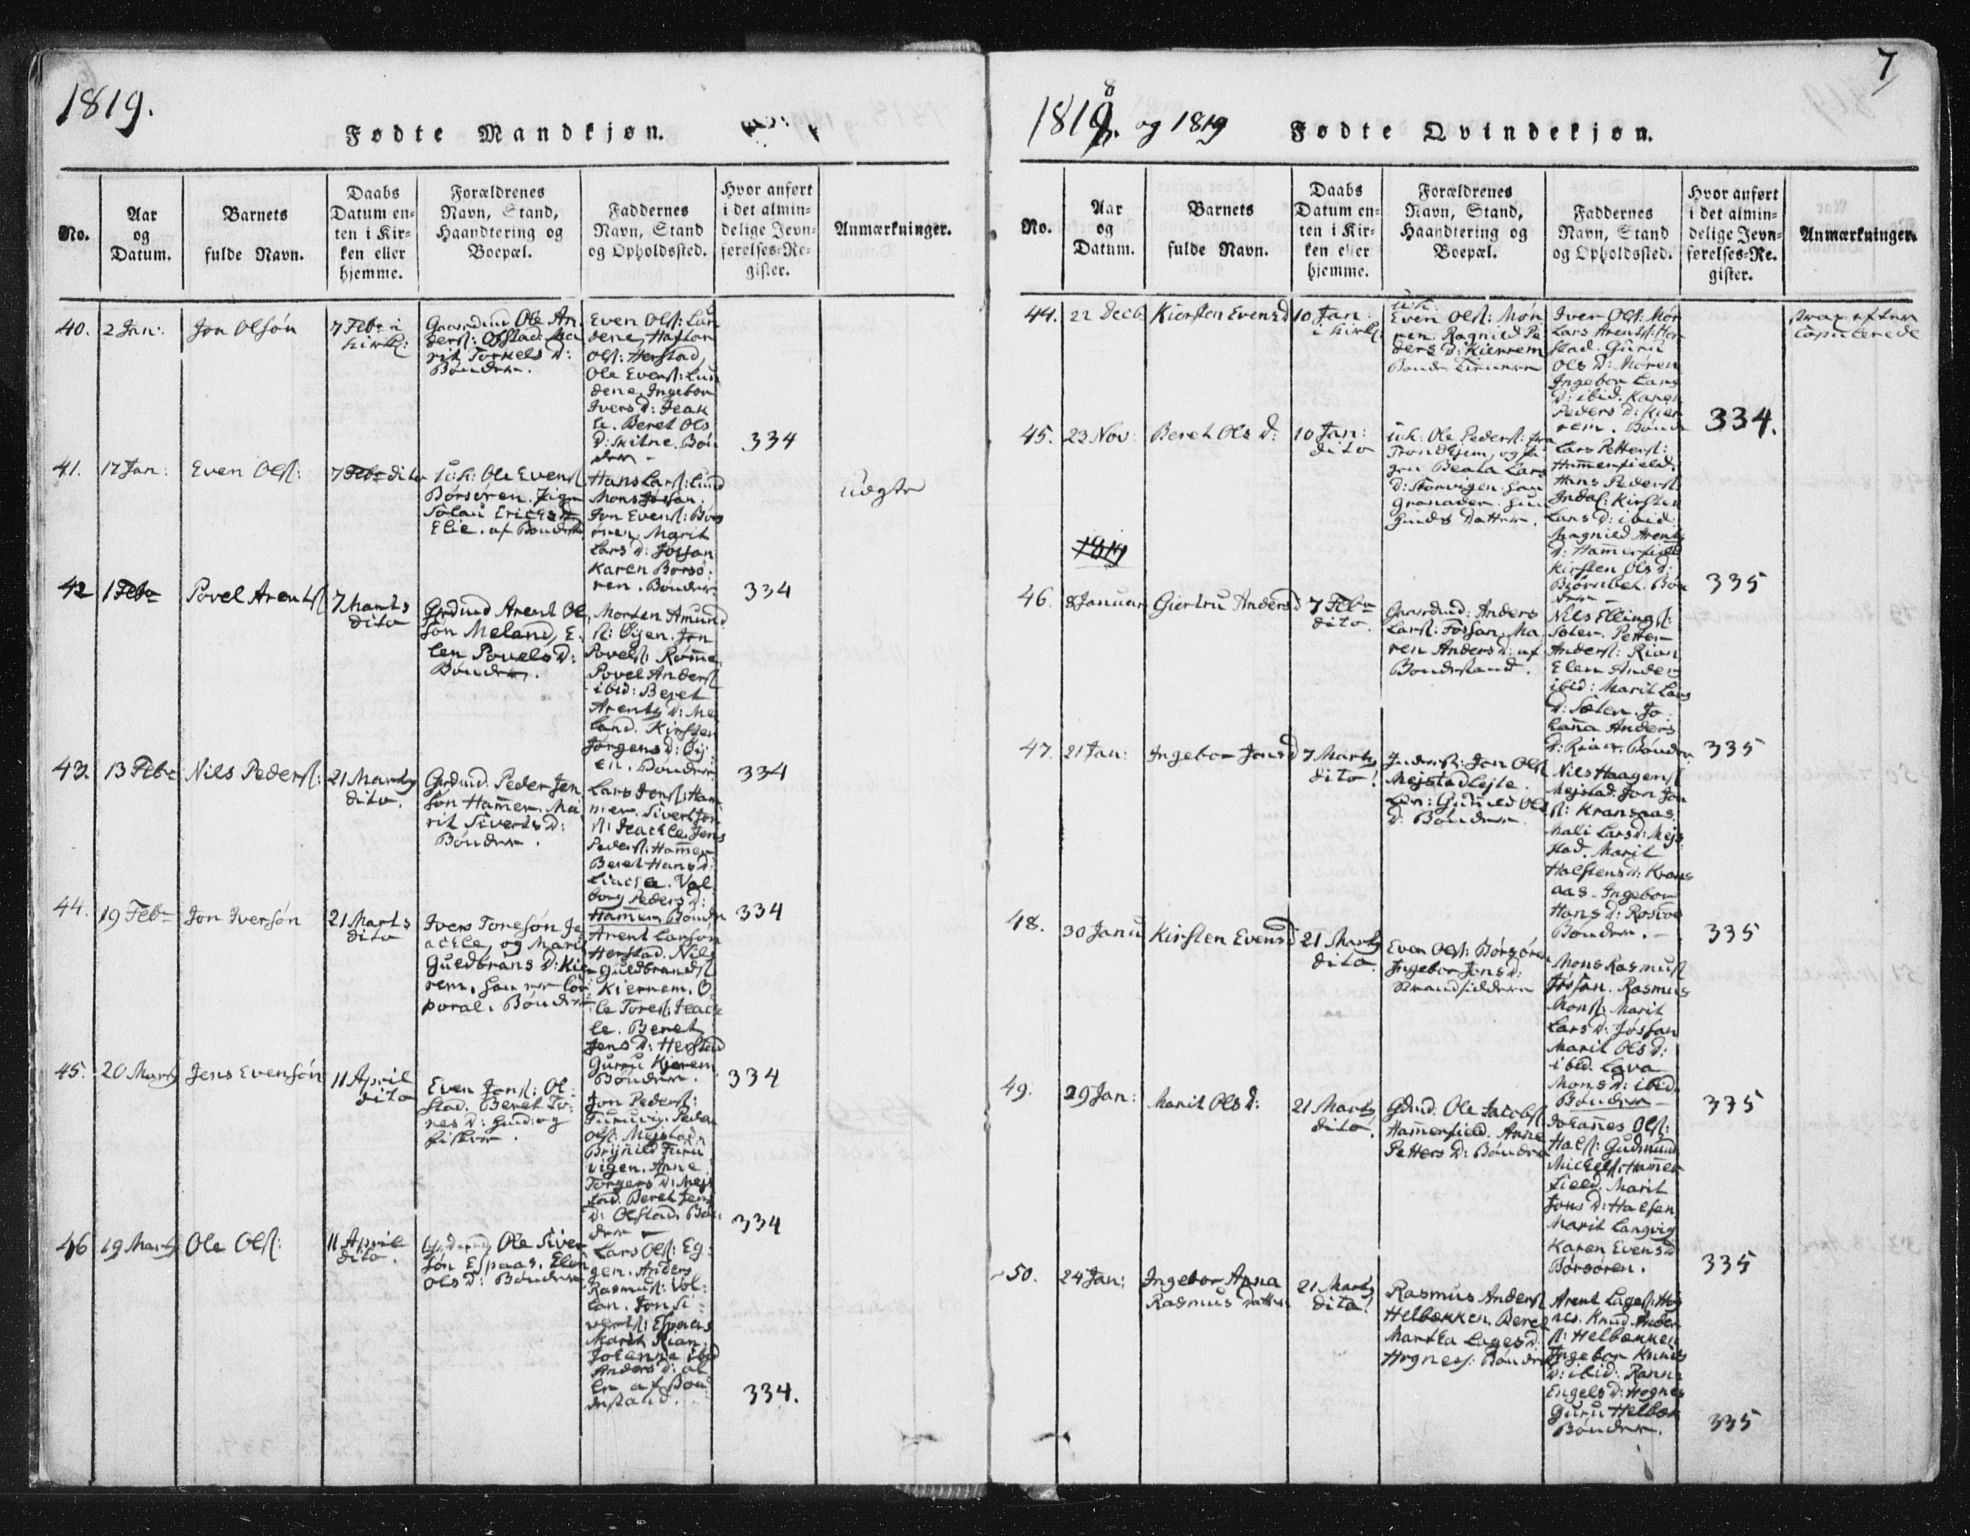 1819.
Fødte Mandkjøn.
No.
Aar
og
Datum.
Barnets
fulde Navn.
Daabs
Datum en-
ten i Kir-
ken eller
hjemme.
Forældrenes
Navn, Stand,
Haandtering og
Boepæl.
Faddernes
Navn, Stand
og Opholdssted.
Hvor anført
i det almin-
delige Jevn-
førelses-Re-
gister.
Anmærkninger.
40. 2 Jan: Jon Olsøn
7 Febr i
Kirk:
Gaardmd Ole An
ders: Ofstad. Ma
rit Torkels D:
Bønder.
Even Ols: Lun
dene, Haftor
Ols: Herstad,
Ole Evens: Lun
dene. Ingebor
Ivers D: Jeak
le. Beret Ols
D: Bøn
der
334
41. 17 Jan: Even Ols:
7 Febr dito
u: k: Ole Evens
Børsøren. Pigen
Eriks D
Elie. af Bønder
Hans Lars: Lund
Mons Jøssan.
Jon Evens: Børs
øren. Marit
Lars D: Jøssan
Karen Børsø
ren. Bønder
334
uægte
42 1 Febr Povel Arents
7 Marts
dito
Grdmd Arent Ol
søn Meland, E-
len Povels D:
Bønder.
Morten Amund
s: Øyen. Jon
Povels: Rømme
Povel Anders
ibid: Beret
Arents D: Me
land. Kirsten
Jørgens D: Øy
en. Bønder
334
43. 13 Febr Nils Peders:
21 Marts
dito.
Grdmd. Peder Jen
søn Hammer. Ma
rit Siverts D:
Bønder.
Lars Jens: Ham
mer. Sivert Jon
s: Jeackle. Jens
Peders: Hammer
Beret Hans D:
Liacke. Val
borg Peders D:
Hammer. Bønder
334
44. 19 Febr Jon Iversøn
21 Marts
dito
Ivers Tonesøn Je
ackle, og Marit
Guldbrans D: Kier
rem. han er Cor
poral. Bønder
Arent Larsøn
Herstad. Nils
Guldbrands
Kiernem. O
le Tores: Jeack
le. Beret
Jens D: Herstad
Gurru Kjerem
Bønder.
334
45. 20 Marts Jens Evensøn
11 April
dito
Even Jons: Ol-
stad. Beret To-
nes D: og
Jon Peders:
Furuvig. Peder
Ols: Mejstad
Brynild Furu
vigen. Anne
Torgers D: Mej
stad. Beret Jens
D: Olstad. Bøn
der
334
46 19 Marts Ole Ols:
11 April
dito.
Grdmd Ole Siver
søn Espaas. Elen
Ols D: Bønder
Lars Ols: Eg-
gen. Anders
Rasmus: Vol-
lan. Jon Si-
verts: Espaas
Marit Rian
Johanna ibid
Anders D: al
le af Bon
destand.
334.
7
1818. og 1819
Fødte Qvindekjøn.
No.
Aar
og
Datum.
Barnets
fulde Navn.
Daabs
Datum en-
ten i Kir-
ken eller
hjemme.
Forældrenes
Navn, Stand,
Haandtering og
Boepæl.
Faddernes
Navn, Stand
og Opholdssted.
Hvor anført
i det almin-
delige Jevn-
førelses-Re-
gister.
Anmærkninger.
44. 22 Decb Kiersten Evens D
10 Jan:
i Kirk:
u: k:
Even Ols: Møn
ren. Ragnild Pe
ders D: Kierrem
Iver Ols: Mør
Lars Arents: Her
stad. Guru
Ols D: Møren
Ingebor Lars
D: ibid. Karen
Peders D: Kier
rem. Bønd
334.
strax efter
Copulerede
45. 23 Nov: Beret Ols D:
10 Jan:
dito
u: k: Ole Peders: fra
Trondhjem, og Pi
gen Beata Lars
D: Storvigen. han
Granader. hun
Lars Petters:
Hammerfield.
Hans Peders:
Indal: Kirsten
Lars D: ibid:
Magnild Arents
D: Hammerfield
Kirsten Ols D:
Bjørnbet. Bøn
der
335
1819
46. 8 Januar Giertru Anders D
7 Febr
dito.
Gaardmd: Anders
Lars: Fossan. Ma
ren Anders D: af
Bondestand.
Nils Ellings:
Solem. Petter
Anders: Rian
Elen Anders
ibid: Marit Lars
D: Solem. Jo
hanna Anders
D: Rian. Bønder
335
47. 21 Jan: Ingebor Jons D
7 Marts
dito.
Inders: Jon Ols
Mejstad Lejle-
Ols
D: Bønder.
Nils Haagens
Mejstad. Jon Jon
s: Kransaas.
Mali Lars D: Mej
stad. Marit
Halstens D: Krans
aas. Ingebor
Hans D: Rosvoe
Bønder.
335
48. 30 Janu Kirsten Evens D
21 Marts
dito.
Even Ols: Børsøren
Ingebor Jons D:
Strandsiddere
Mons Rasmus
Jøssan. Rasmus
Mons: Marit
Lars D: Jøssan
Marit Ols D:
ibid. Lava
Mons D: ibid.
Bønder
335
49. 29 Jan: Marit Ols D:
21 Marts
dito.
Grdmd. Ole Jacobs:
Hammerfield. Anne
Petters D: Bønder
Johannes Ols:
Hals: Gudmund
Michels: Hammer
field. Marit
Jons D: Halsen
Marit Langvig
Karen Evens D
Børsøren.
335
50. 24 Jan: Ingebor Anna
Rasmus Datter
21 Marts
dito.
Rasmus Anders
Helbækken. Beret
Martha Lages D:
Hognes: Bønder
Arent Lages: Hog
nes. Knud Ander
s: Helbækken
Ingebor Knuds
D: ibid: Rann
Engels D: Hognes
Guru Helbæk
Bønder.
335